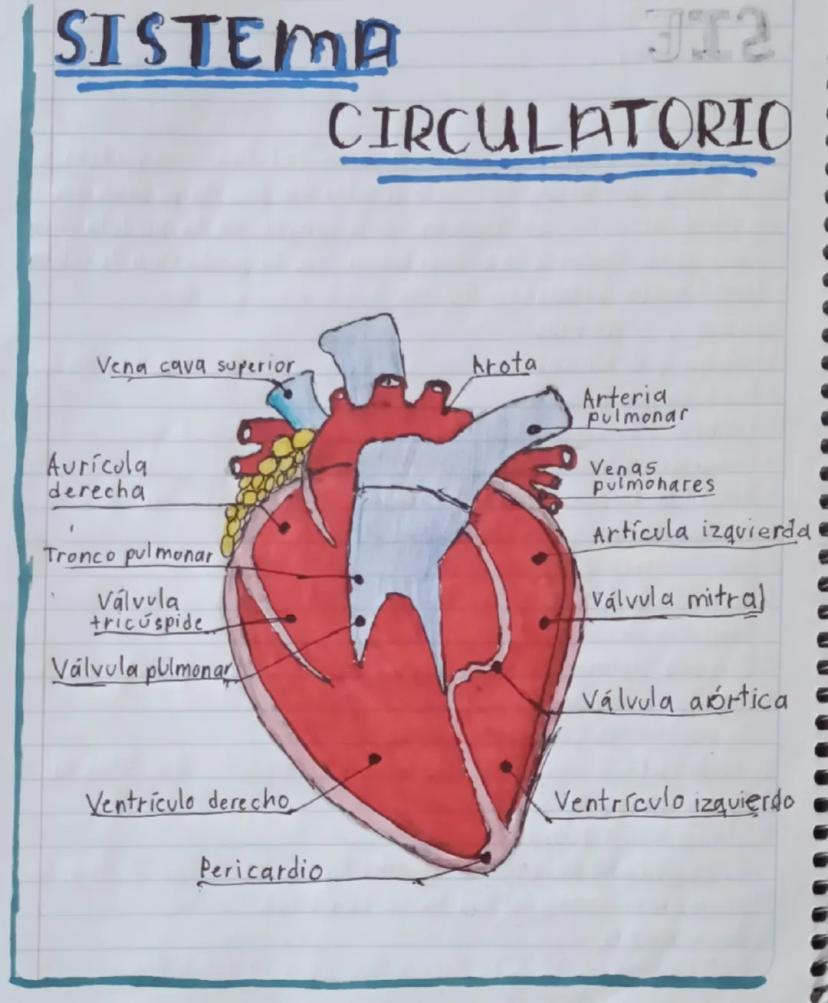 SISTEMA
CIRCULATORIO
Vena cava superior
Arota
Arteria
pulmonar
Aurícula
derecha
Venas
pulmonares
Artícula izquierda
Tronco pulmonar
Válvula
tricúspide
Válvula mitral
Válvula pulmonar
Válvula aórtica
Ventrículo derecho
Ventrículo izquierdo
Pericardio